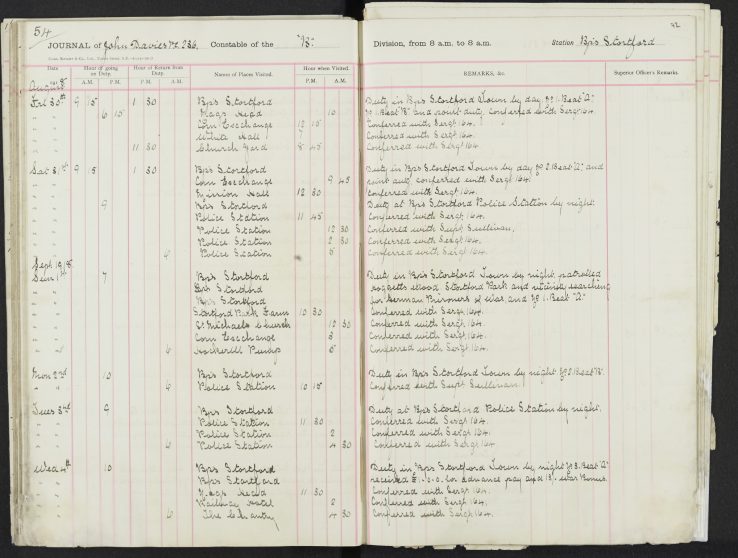 54
92
JOURNAL of John Davies PC 236. Constable of the "B". Division, from 8 a.m. to 8 a.m. Station Bp's Stortford
Date Hour of going on Duty. Hour of Return from Duty. Names of Places Visited. Hour when Visited. REMARKS, &c. Superior Officer's Remarks.
A.M. P.M. P.M. A.M. P.M. A.M.
August
Fri 30th 9 15 1 30 Bp's Stortford Duty in Bp's Stortford Town by day, 1 Beat "A"
6 15 Head 10 1 Beat "B" and conferred with Sergt 164.
Corn Exchange 12 15 Conferred with Sergt 164.
White Hall 7 Conferred with Sergt 164.
11 30 Church Yard 8 45 Conferred with Sergt 164.
Sat 31st 9 5 1 30 Bp's Stortford Duty in Bp's Stortford Town by day 2 Beat "A" and
Corn Exchange 9 45 duty, conferred with Sergt 164.
Hall 12 30 Conferred with Sergt 164.
9 Bp's Stortford Duty at Bp's Stortford Police Station by night.
Police Station 11 45 Conferred with Sergt 164.
Police Station 12 30 Conferred with Supt Sullivan.
Police Station 2 30 Conferred with Sergt 164.
6 Police Station 5 Conferred with Sergt 164.
Sept 1918.
Sun 1st 7 Bp's Stortford Duty in Bp's Stortford Town by night, patrolled
Bp's Stortford Wood, Stortford Park and vicinity searching
Bp's Stortford for German Prisoners of War, and 1 Beat "A".
Stortford Park Farm 10 30 Conferred with Sergt 164.
St Michaels Church 12 30 Conferred with Sergt 164.
Corn Exchange 3 Conferred with Sergt 164.
6 Hockerill Pump 5 Conferred with Sergt 164.
Mon 2nd 10 Bp's Stortford Duty in Bp's Stortford Town by night 2 Beat "B".
6 Police Station 10 15 Conferred with Supt Sullivan.
Tues 3rd 9 Bp's Stortford Duty at Bp's Stortford Police Station by night.
Police Station 11 30 Conferred with Sergt 164.
Police Station 2 Conferred with Sergt 164.
6 Police Station 4 30 Conferred with Sergt 164.
Wed 4th 10 Bp's Stortford Duty in Bp's Stortford Town by night 3 Beat "A"
Bp's Stortford received for advance pay and War Bonus.
Head 11 30 Conferred with Sergt 164.
Railway Hotel 2 Conferred with Sergt 164.
6 The Chantry 4 30 Conferred with Sergt 164.